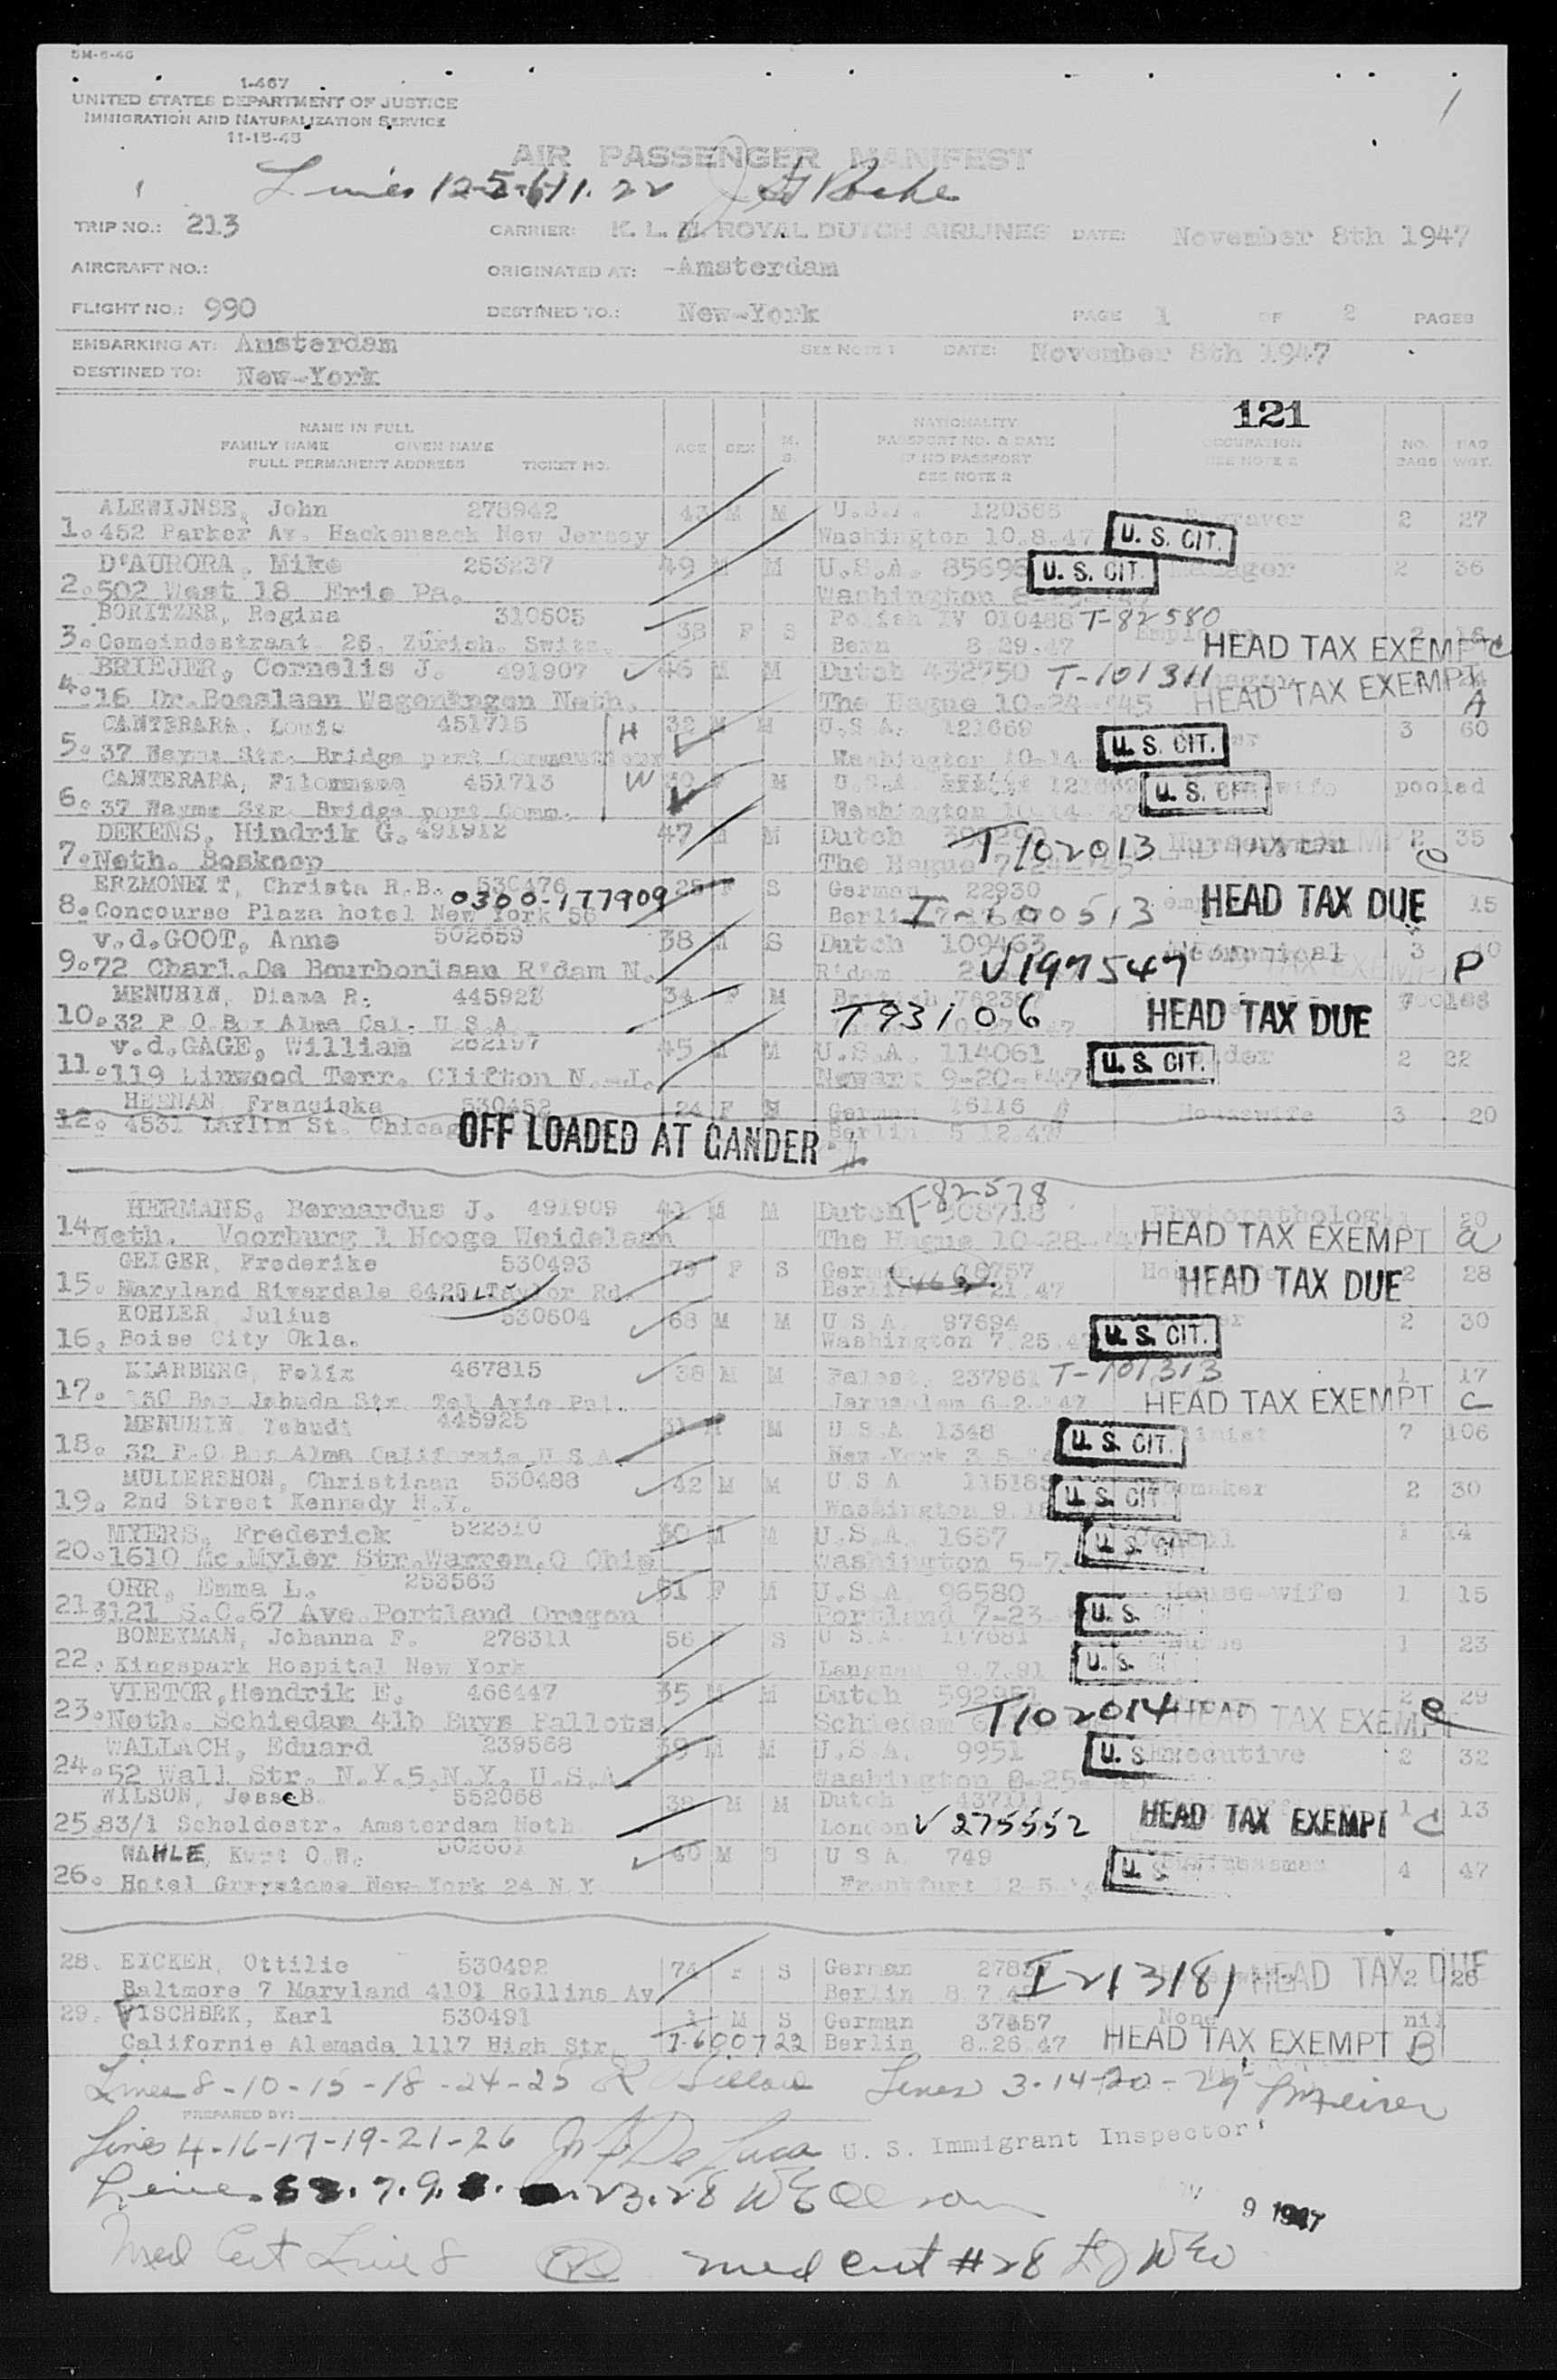 5M-6-46
1
I-467
UNITED STATES DEPARTMENT OF JUSTICE
IMMIGRATION AND NATURALIZATION SERVICE
11-15-45
AIR PASSENGER MANIFEST
Lines 1-2-5-6-11-22
TRIP NO.: 213 CARRIER: K. L. M. ROYAL DUTCH AIRLINES DATE: November 8th 1947
AIRCRAFT NO.: ORIGINATED AT: -Amsterdam
FLIGHT NO.: 990 DESTINED TO.: New-York PAGE 1 OF 2 PAGES
EMBARKING AT: Amsterdam SEE NOTE 1 DATE: November 8th 1947
DESTINED TO: New-York
121
NAME IN FULL
FAMILY NAME GIVEN NAME
FULL PERMANENT ADDRESS TICKET NO.
AGE SEX M. S.
NATIONALITY
PASSPORT NO. & DATE
IF NO PASSPORT
SEE NOTE 2
OCCUPATION
SEE NOTE 2
NO. BAGS BAG WGT.
ALEWIJNSE, John 278942 43 M M U.S.A. 120365 Engraver 2 27
1. 452 Parker Av. Hackensack New Jersey Washington 10.8.47 U. S. CIT.
D'AURORA, Mike 253237 49 M M U.S.A. U. S. CIT. 2 36
2. 502 West 18 Erie Pa. Washington
BORITZER, Regina 310505 38 F S Polish IV 010488 T-82580
3. Gemeindestraat 26, Zürich. Switz. Bern 8 29.47 HEAD TAX EXEMPT C
BRIEJER, Cornelis J. 491907 46 M M Dutch 432750 T-101311
4. 16 Dr. Boeslaan Wageningen Neth. The Hague 10-24-'45 HEAD TAX EXEMPT A
CANTERARA, Louis 451715 H 32 M M U.S.A. 121669 3 60
5. 37 Wayne Str. Bridge port Washington 10-14 U. S. CIT.
CANTERARA, Filomena 451713 W 30 F M U.S.A. pooled
6. 37 Wayne Str. Bridge port Conn. Washington 10-14-'47 U. S. CIT.
DEKENS, Hindrik G. 491912 47 M M Dutch T102013 2 35
7. Neth. Boskoop The Hague
ERZMONEIT, Christa R.B. 530476 25 F S German 22930 HEAD TAX DUE 15
0300-177909
8. Concourse Plaza hotel New York 56 Berlin I-600513
v.d.GOOT, Anne 502659 38 M S Dutch 109463 3 40
9. 72 Charl.De Bourbonlaan R'dam N. R'dam V197547 P
MENUHIN, Diana R. 445928 34 F M British 762387
10. 32 P O Box Alma Cal. U S A T93106 HEAD TAX DUE
v.d.GAGE, William 262197 45 M M U.S.A. 114061 2 22
11. 119 Linwood Terr. Clifton N.-J. Newark 9-20-'47 U. S. CIT.
HEENAN Franciska 530452 24 F M German 16116 Housewife 3 20
12. 4531 Laflin St. Chicago Berlin 5 12.47
OFF LOADED AT GANDER
T-82578
HERMANS, Bernardus J. 491909 41 M M Dutch 508718 20
14 Neth. Voorburg 1 Hooge Weidelaan The Hague 10-28- HEAD TAX EXEMPT a
GEIGER, Frederike 530493 79 F S German 2 28
15. Maryland Riverdale 6425 Taylor Rd. Berlin 21.47 HEAD TAX DUE
KOHLER Julius 530504 68 M M U S A 97694 2 30
16. Boise City Okla. Washington 7.25.4 U. S. CIT.
KLARBERG, Felix 467815 38 M M Palest. 237961 T-101313 1 17
17. 130 Ben Jehuda Str. Tel Aviv Pal. Jerusalem 6-2-'47 HEAD TAX EXEMPT C
MENUHIN Yehudi 445925 31 M M U S A 1348 7 106
18. 32 P.O Box Alma California U S A New-York 3-5- U. S. CIT.
MULLERSHON, Christiaan 530488 42 M M U S A 2 30
19. 2nd Street Kennedy N.Y. Washington 9.18 U. S. CIT.
MYERS, Frederick 522310 30 M M U.S.A. 1657 1 14
20. 1610 Mc.Myler Str.Warren,O Ohio Washington 5-7. U. S. CIT.
ORR, Emma L. 253563 51 F M U.S.A 96580 House-wife 1 15
21 3121 S.C.67 Ave Portland Oregon Portland 7-23- U. S.
BONEYMAN, Johanna F. 278311 56 S U S.A. 117681 1 23
22. Kingspark Hospital New York Langnau 9.7.91 U. S.
VIETOR, Hendrik E. 466447 35 M M Dutch 2 29
23. Neth. Schiedam 41b Buys Ballots Schiedam T102014 HEAD TAX EXEMPT
WALLACH, Eduard 239568 39 M M U.S.A. 9951 Executive 2 32
24. 52 Wall Str. N.Y.5.N.Y. U.S.A. Washington 8-25- U. S.
WILSON, Jesse B. 552068 38 M M Dutch 437111 1 13
25. 83/1 Scheldestr. Amsterdam Neth London V 275552 HEAD TAX EXEMPT C
WAHLE, Kurt O.W. 502661 40 M S U S A 749 4 47
26. Hotel Greystone New-York 24 N Y Frankfurt 12-5. U. S
28. EICKER, Ottilie 530492 74 F S German HEAD TAX DUE 2 26
Baltmore 7 Maryland 4101 Rollins Av Berlin I213181
29. FISCHBEK, Karl 530491 1 M S German 37457 None nil
Californie Alemada 1117 High Str. T-600722 Berlin 8.26.47 HEAD TAX EXEMPT B
Lines 8-10-15-18-24-25 Lines 3-14-20-29
PREPARED BY:
Lines 4-16-17-19-21-26 U. S. Immigrant Inspector
Lines 7.9. 23.28
9 1947
Med Cert Line 8 med cert #28